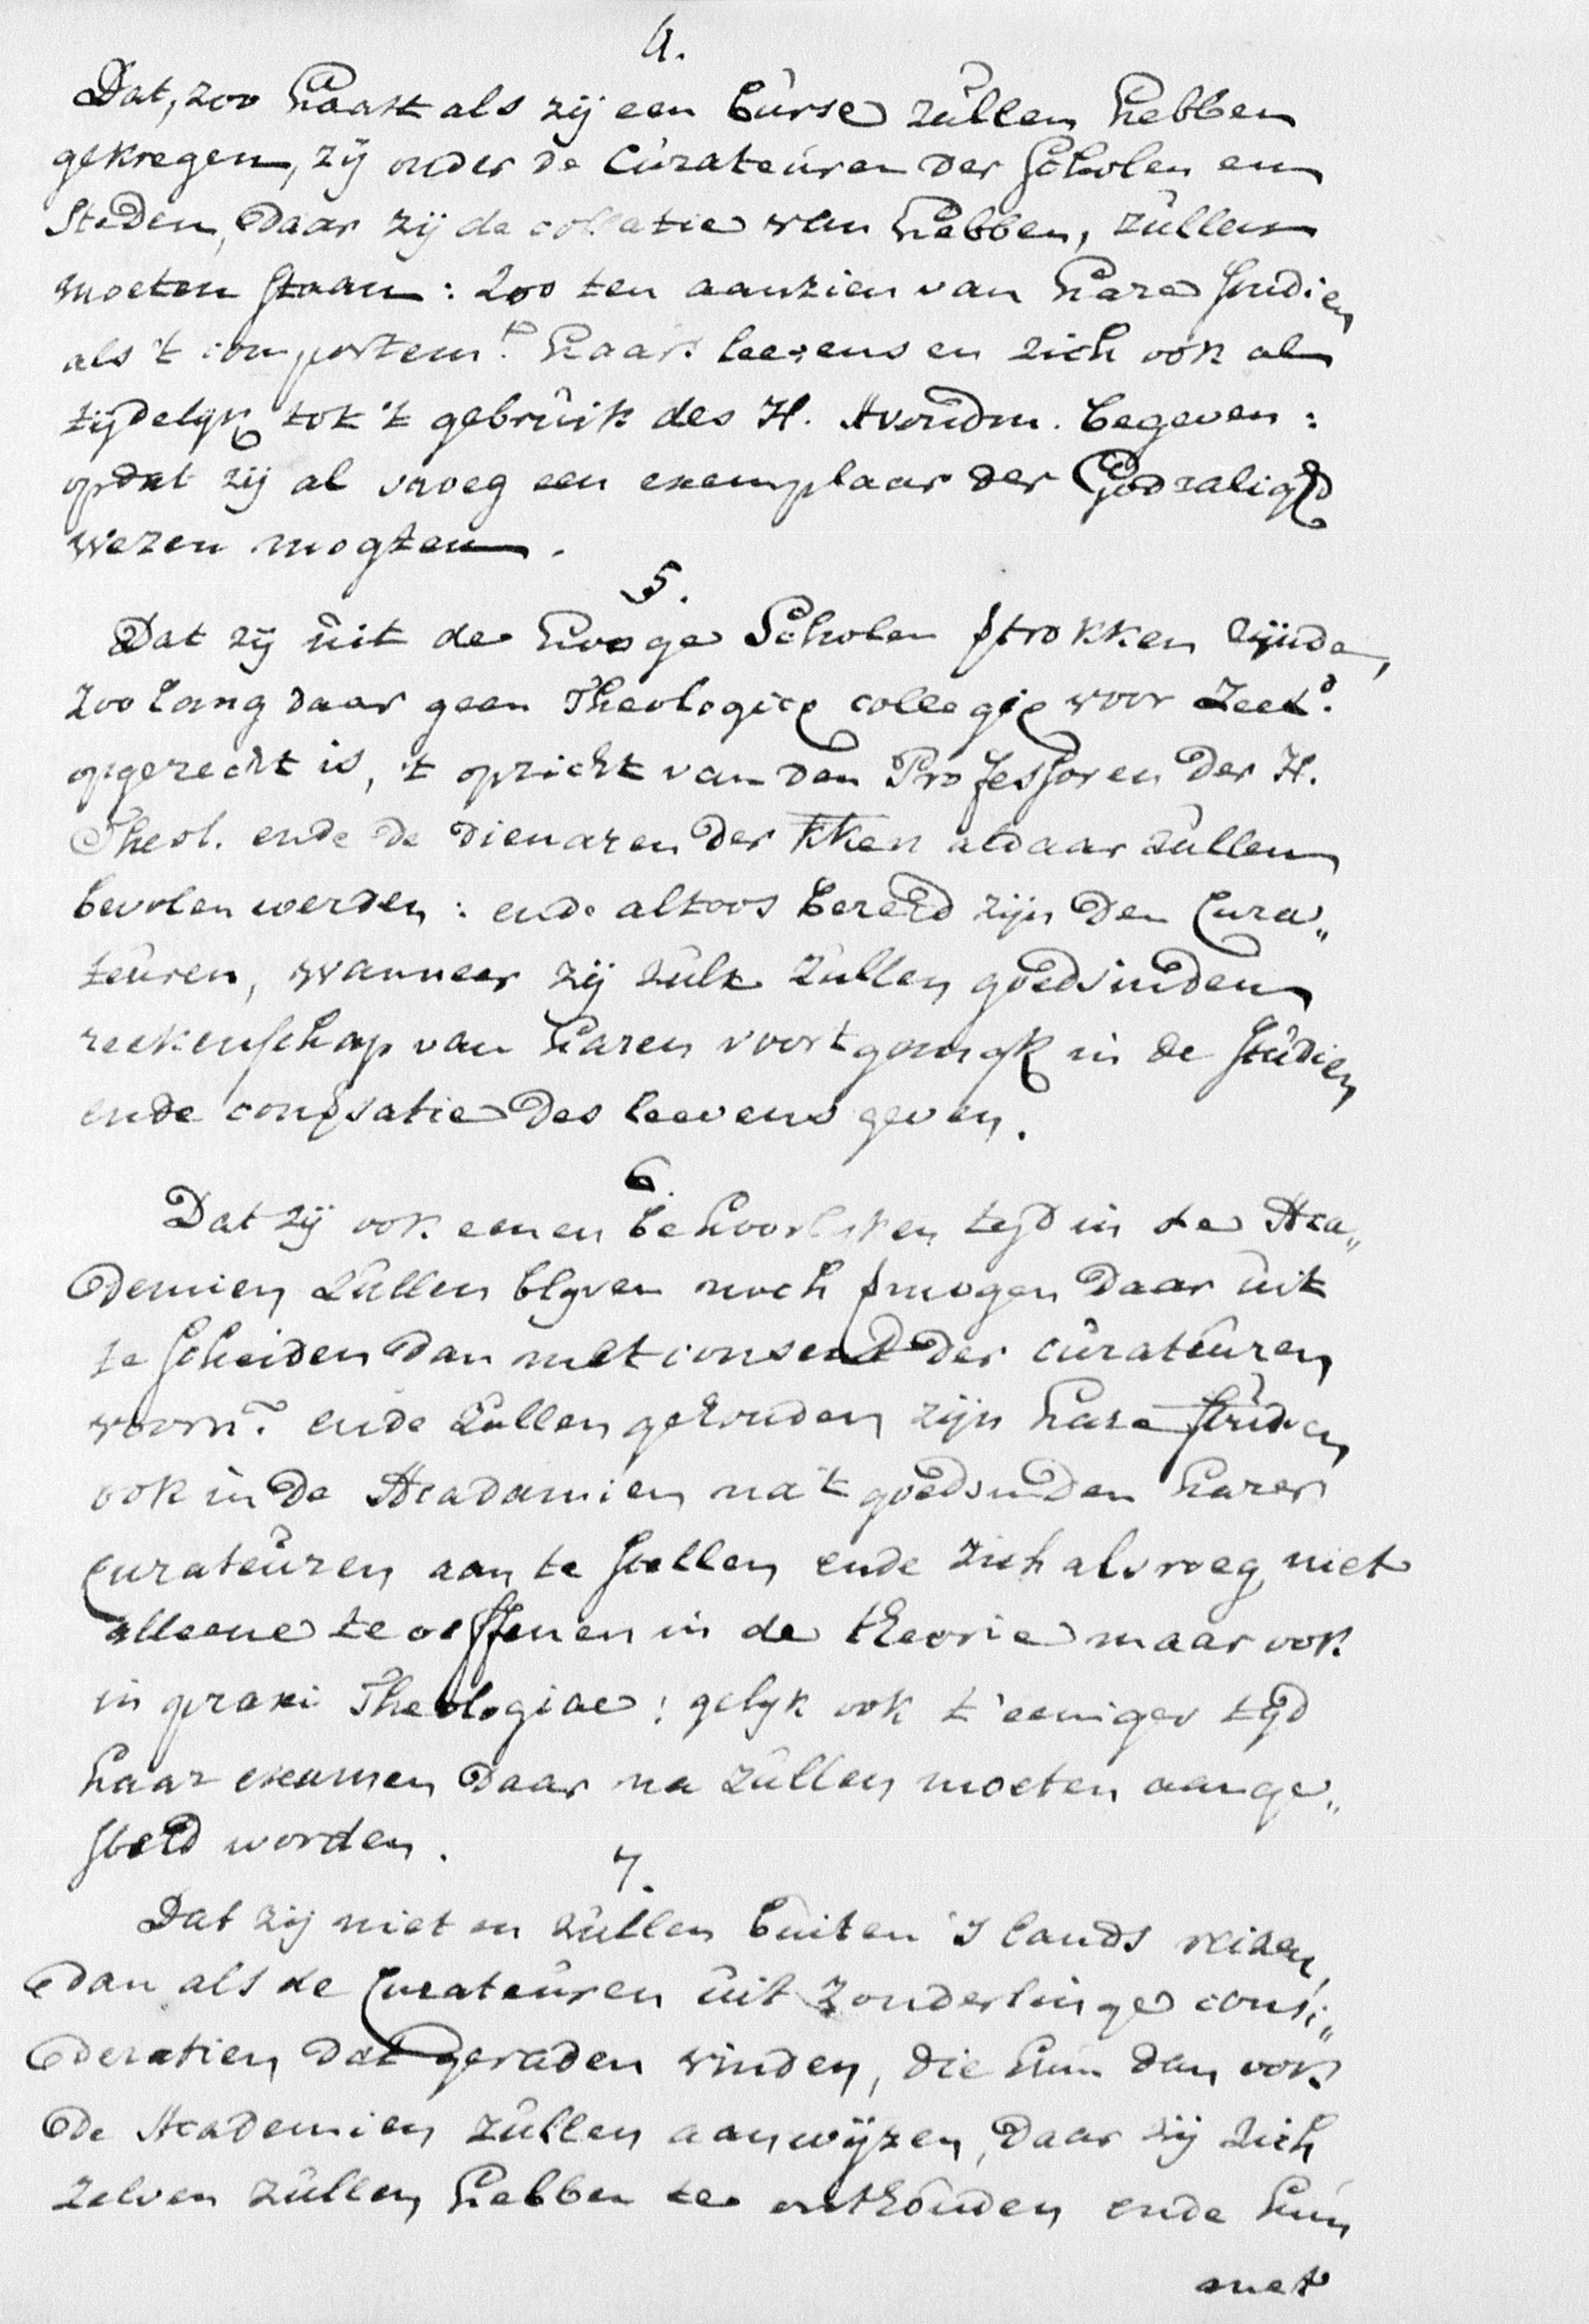 4.
Dat, zoo haast als zij een burse zullen hebben
gekregen, zij onder de Curateuren der Scholen en
Steden, daar zij de collatie van hebben, zullen
moeten staan: zoo ten aanzien van hare studien
als 't comportemt. haars leevens en zich ook al
tijdelyk tot 't gebruik des H. Avondm. begeven:
opdat zij al vroeg een exemplaar der Godzalighd
wezen mogten.
5.
Dat zij uit de hooge Scholen strokken zijnde,
zoo lang daar geen Theologice collegie voor Zeeld.
opgerecht is, 't opzicht van den Professoren der H.
Theol. ende de dienaren der kken aldaar zullen
bevolen werden: ende altoos bereid zijn den Cura„
teuren, wanneer zij zulx zullen goedvinden
reekenschap van haren voortgangk in de studien
ende consatie des leevens geven.
6.
Dat zij ook eenen behoorlyken tyd in de Aca„
demien zullen blyven noch mogen daar uit
te scheiden dan met consent der curateuren
voorn. ende zullen gehouden zijn hare studien
ook in de Academien na 't goedvinden harer
Curateuren aan te stellen ende zich al vroeg niet
alleene te oeffenen in de theorie maar ook
in praxi Theologiae: gelyk ook t' eeniger tyd
haar examen daar na zullen moeten aange„
steld worden.
7.
Dat zij niet en zullen buiten 's lands reizen,
dan als de Curateuren uit zonderlinge consi„
deratien dat geraden vinden, die hun dan ook
de Academien zullen aanwijzen, daar zij zich
zelven zullen hebben te onthouden ende hun
met